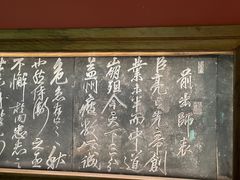 前出師表
臣亮言先帝創
業未半而中道
崩殂今天下三分
益州疲敝此誠
危急存亡之秋
也然侍衛之臣
不懈於內忠志